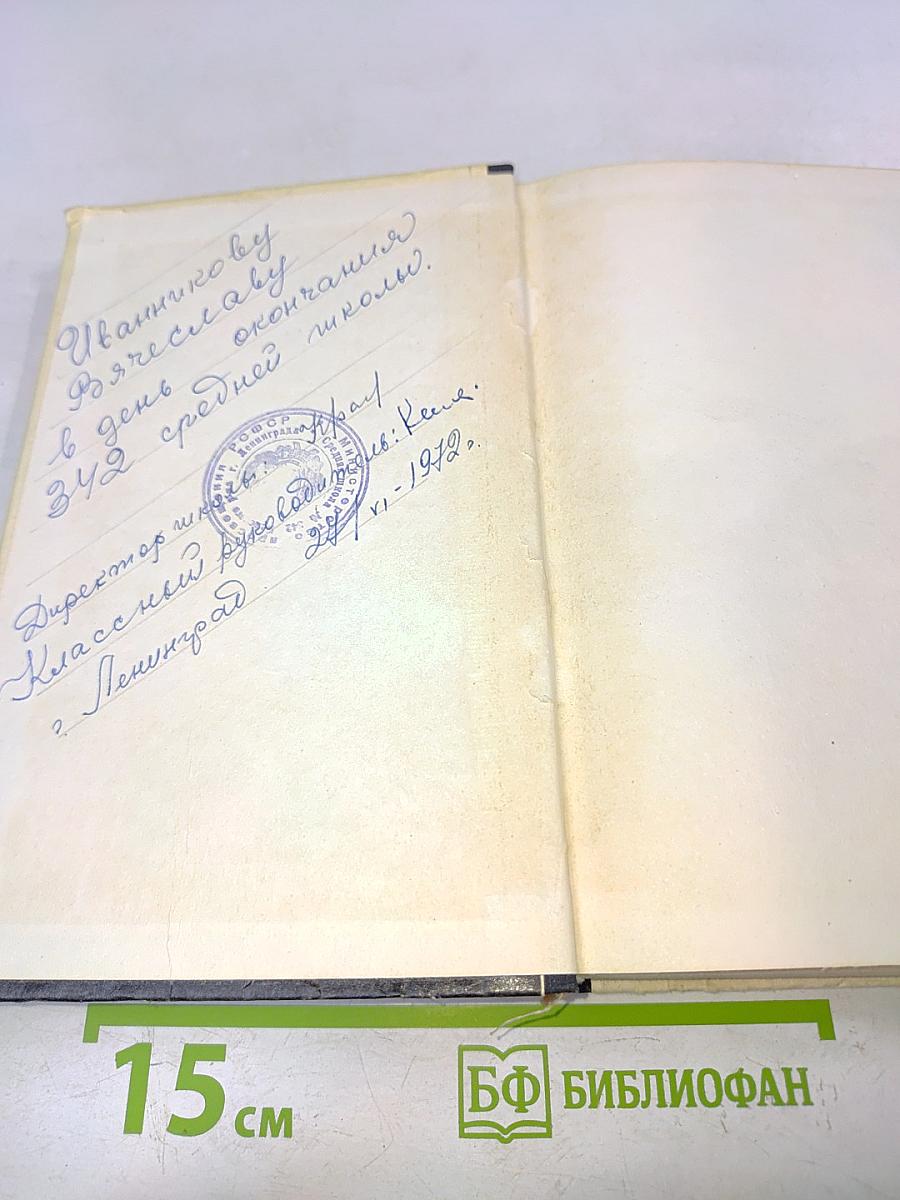 Иванникову
Вячеславу
в день окончания
342 средней школы.
Директор школы:
Классный руководитель:
г Ленинград. 27/VI-1972 г.
РСФСР
Министерство
г. Ленинграда
Средняя школа №
342
15 см
БФ БИБЛИОФАН